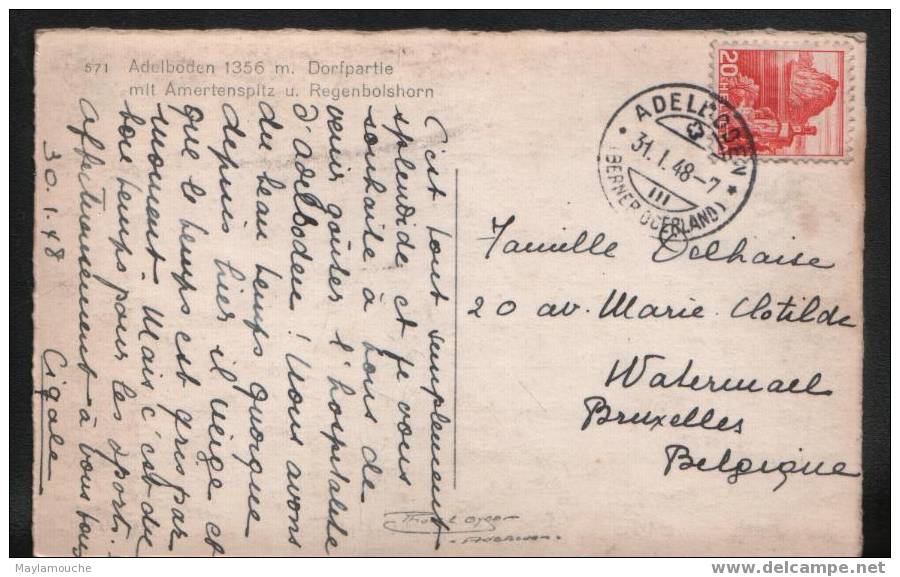 571 Adelboden 1356 m. Dorfpartie
mit Amertenspitz u. Regenbolshorn
C'est tout simplement
splendide et je vous
souhaite à tous de
venir goûter l'hospitalité
d'Adelboden! Nous avons
du beau temps quoique
depuis hier il neige et
que le temps est gris par
moment. Mais c'est du
bon temps pour les sports.
Affectueusement à vous tous
30.1.48 Cigale
ADELBODEN
31.I.48-7
III
(BERNER OBERLAND)
20 HELVETIA
Famille Delhaise
20 av. Marie Clotilde
Watermael
Bruxelles
Belgique
Maylamouche
delcampe.net